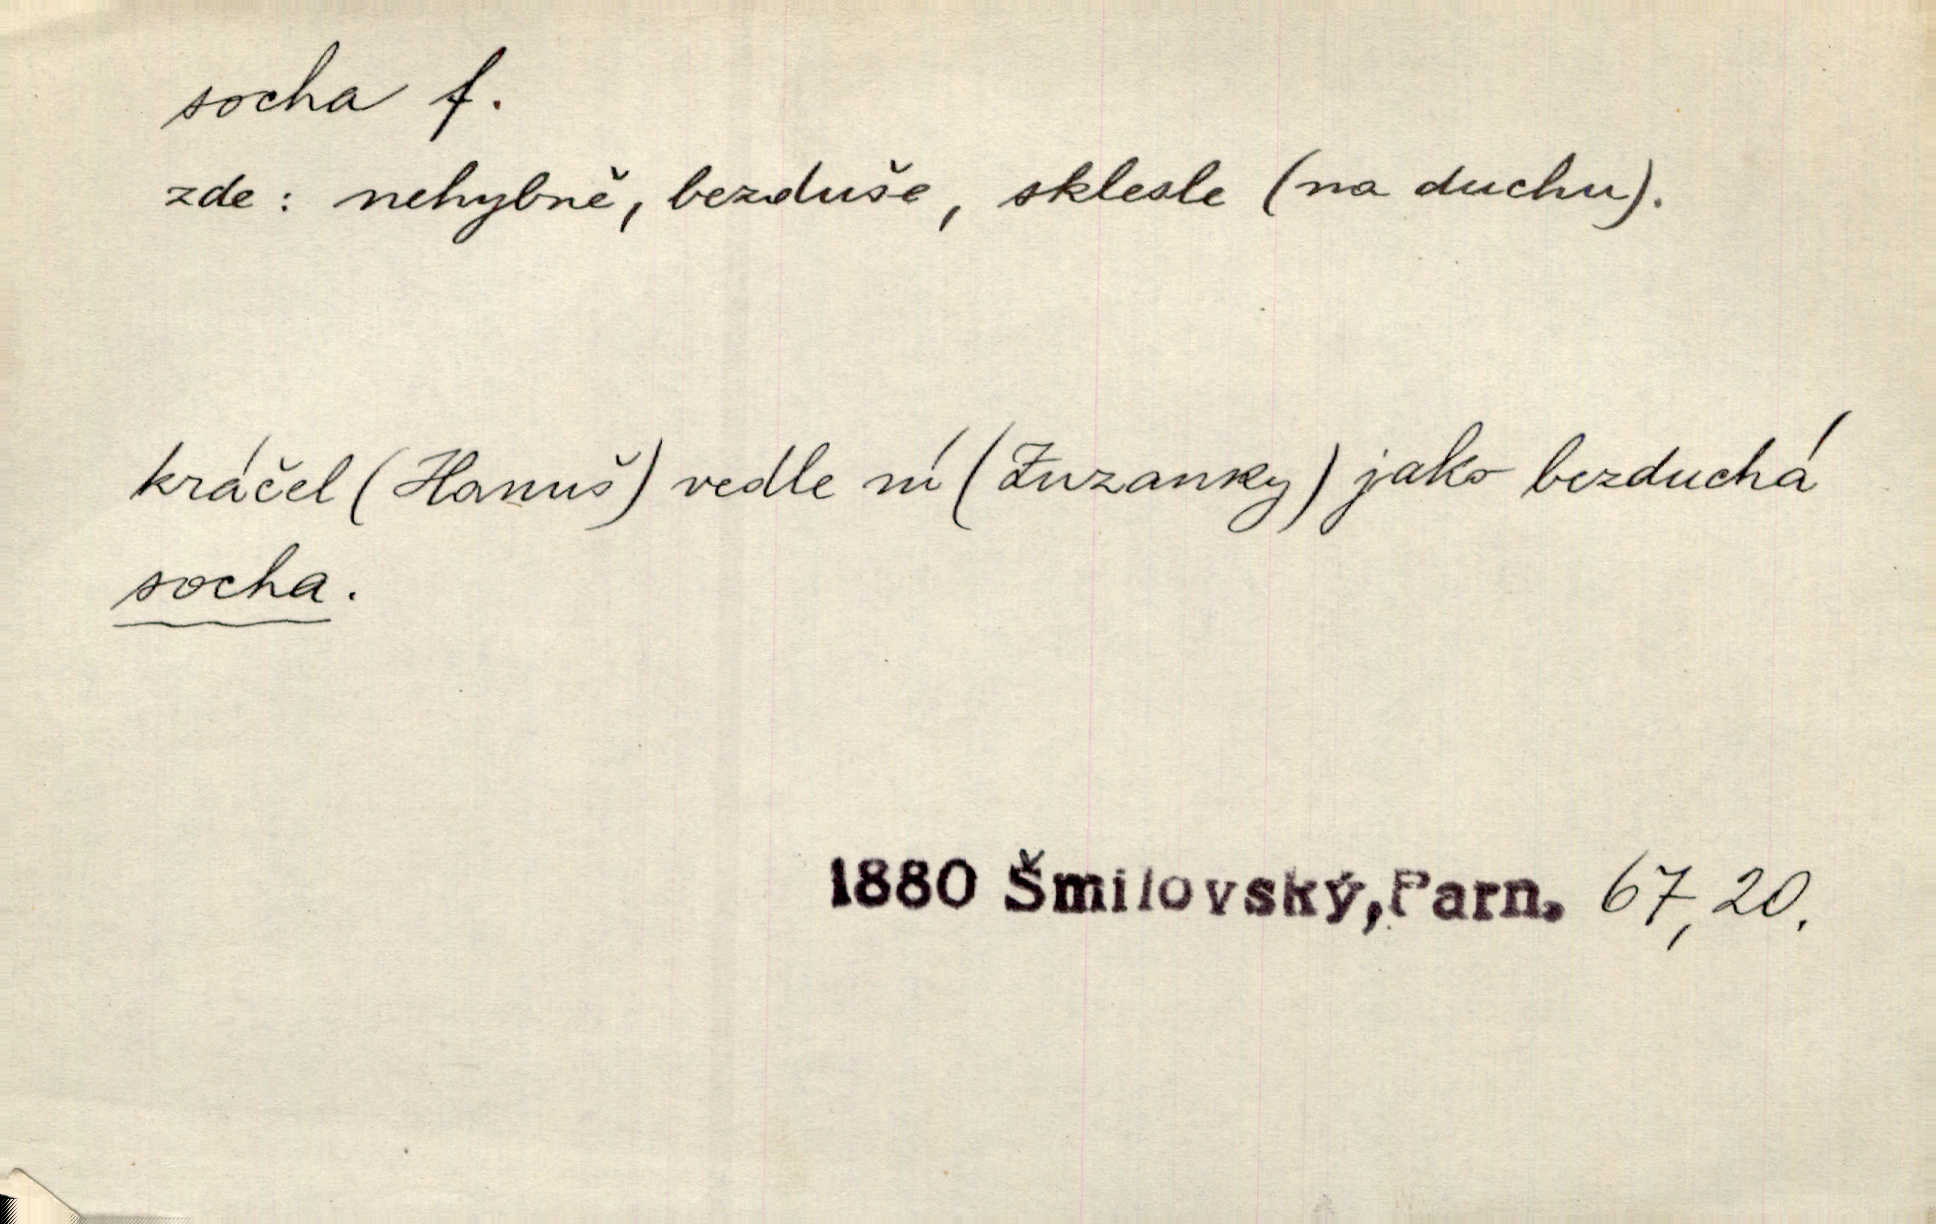 socha f.
zde: nehybně, bezduše, sklesle (na duchu).
kráčel (Hanuš) vedle ní (Zuzanky) jako bezduchá
socha.
1880 Šmilovský, Parn. 67, 20.